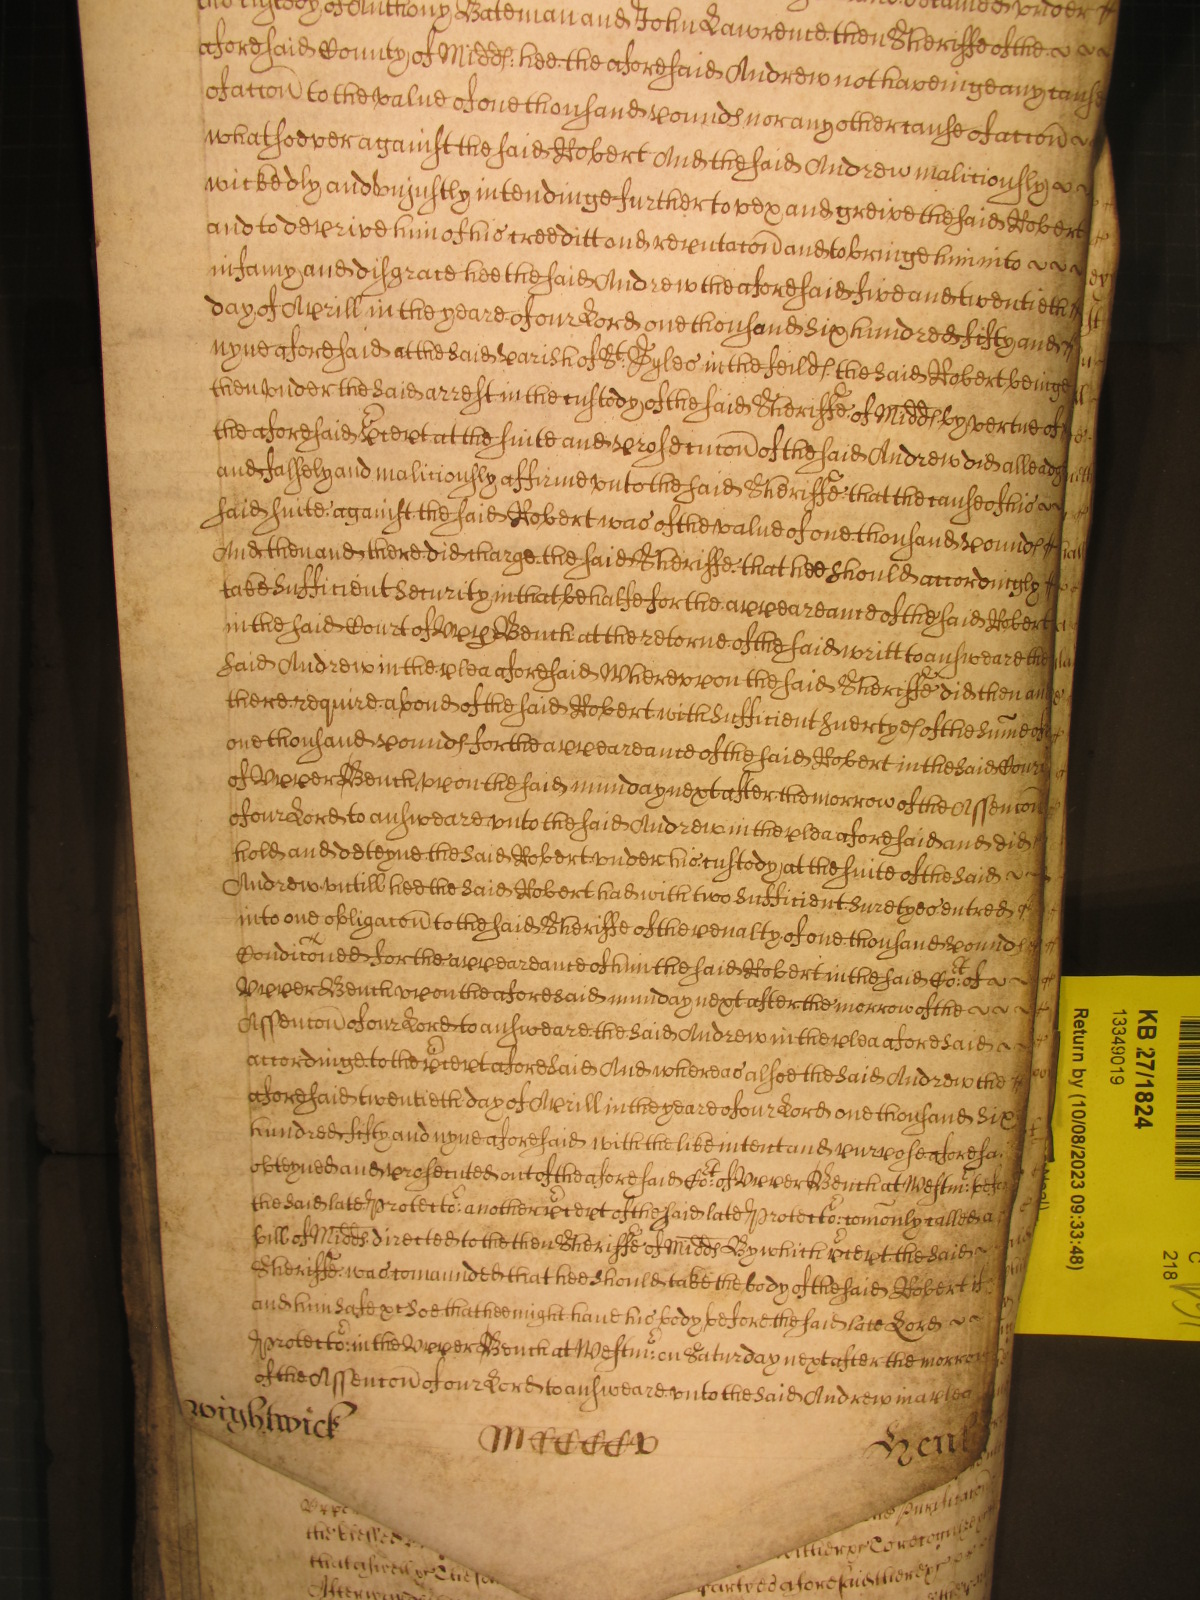 the custody of Anthony Bateman and John Lawrence then Sheriffe of the
aforesaid County of Midds: hee the aforesaid Andrew not haveinge any cause
of accon to the value of one thousand pounds nor any other cause of accon
whatsoever against the said Robert And the said Andrew maliciously
wickedly and uniustly intendinge further to vex and greive the said Robert
and to deprive him of his creeditt and reputacon and to bringe him into
infamy and disgrace hee the said Andrew the aforesaid five and twentieth
day of Aprill in the yeare of our Lord one thousand six hundred fifty and
nyne aforesaid at the said parish of St. Gyles in the feilds the said Robert beinge
then vnder the said arrest in the custody of the said Sheriffe of Midds by vertue of
the aforesaid precept at the suite and prosecucon of the said Andrew did alleadg
and falsely and maliciously affirme vnto the said Sheriffe that the cause of his
said suite against the said Robert was of the value of one thousand pounds
And then and there did charge the said Sheriffe that hee should accordingly
take sufficient security in that behalfe for the appeareance of the said Robert
in the said Court of Upp Bench at the retorne of the said writt to answeare the
said Andrew in the plea aforesaid Wherevpon the said Sheriffe did then and
there require a bond of the said Robert with sufficient suertyes of the sume of
one thousand pounds for the appeareance of the said Robert in the said Court
of Upper Bench vpon the said munday next after the morrow of the Assencon
of our Lord to answeare vnto the said Andrew in the plea aforesaid and did
hold and deteyne the said Robert vnder his custody at the suite of the said
Andrew vntill hee the said Robert had with two sufficient suretyes entred
into one obligacon to the said Sheriffe of the penalty of one thousand pounds
Condiconed for the appeareance of him the said Robert in the said Cot: of
Upper Bench vpon the aforesaid munday next after the morrow of the
Assencon of our Lord to answeare the said Andrew in the plea aforesaid
accordinge to the precept aforesaid And whereas alsoe the said Andrew the
aforesaid twentieth day of Aprill in the yeare of our Lord one thousand six
hundred fifty and nyne aforesaid with the like intent and purpose aforesa
obteyned and prosecuted out of the aforesaid Cot: of Upper Bench at Westmr: before
the said late Protector: another precept of the said late Protector: comonly called a
bill of Midds directed to the then Sheriffe of Midds By which precept the said
Sheriffe: was comaunded that hee should take the body of the said Robert if
and him safe &c Soe that hee might have his body before the said late Lord
Protector: in the Upper Bench at Westmr: on Saturday next after the morrow
of the Assencon of our Lord to answeare vnto the said Andrew in a plea
Wightwick
MCCCCV
Henl
KB 27/1824
13349019
Return by (10/08/2023 09:33:48)
C
218